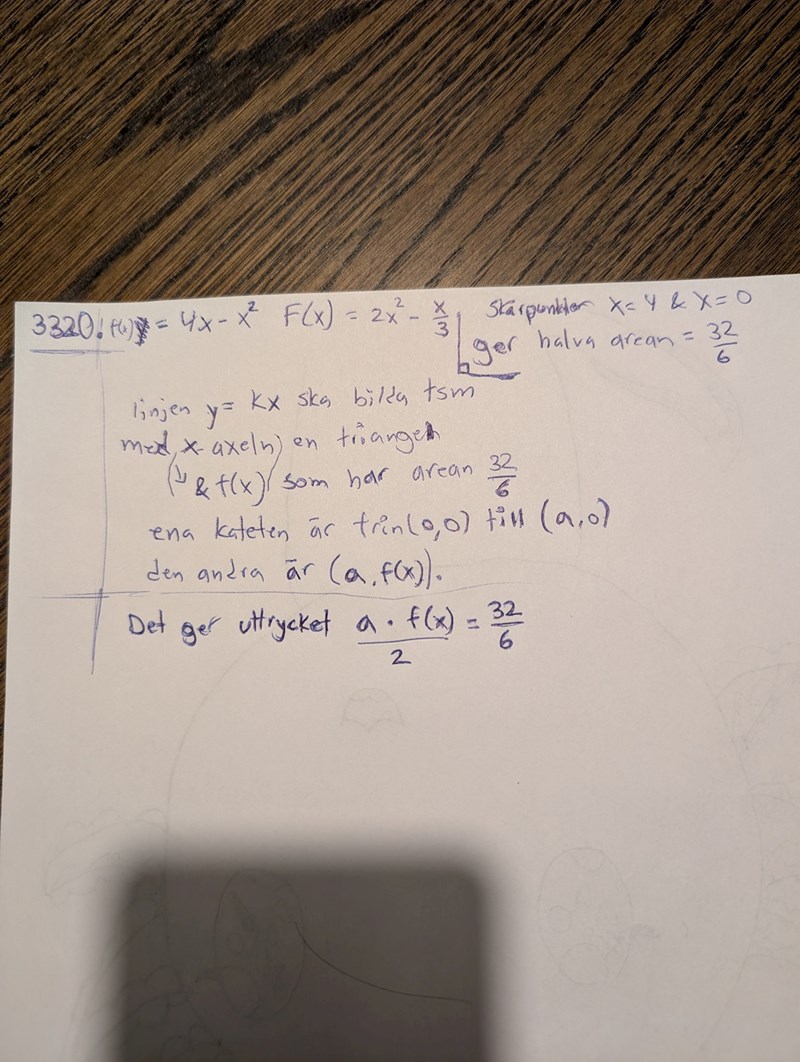 3320. f(x) = 4x - x² F(x) = 2x² - x/3 Skärpunkter x=4 & x=0
ger halva arean = 32/6
linjen y = kx ska bilda tsm
med x-axeln en triangel
& f(x) som har arean 32/6
ena kateten är från (0,0) till (a,0)
den andra är (a, f(x)).
Det ger uttrycket a · f(x) / 2 = 32/6